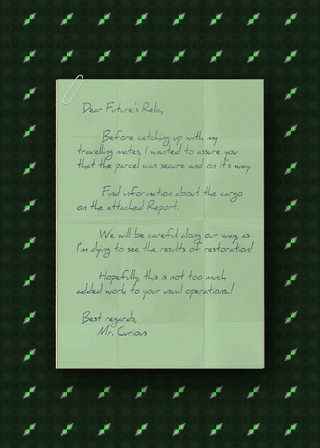 Dear Future's Relic,
Before catching up with my
travelling mates, I wanted to assure you
that the parcel was secure and on it's way.
Find information about the cargo
on the attached Report.
We will be careful along our way, as
I'm dying to see the results of restoration!
Hopefully, this is not too much
added work to your usual operations..!
Best regards,
Mr. Curious